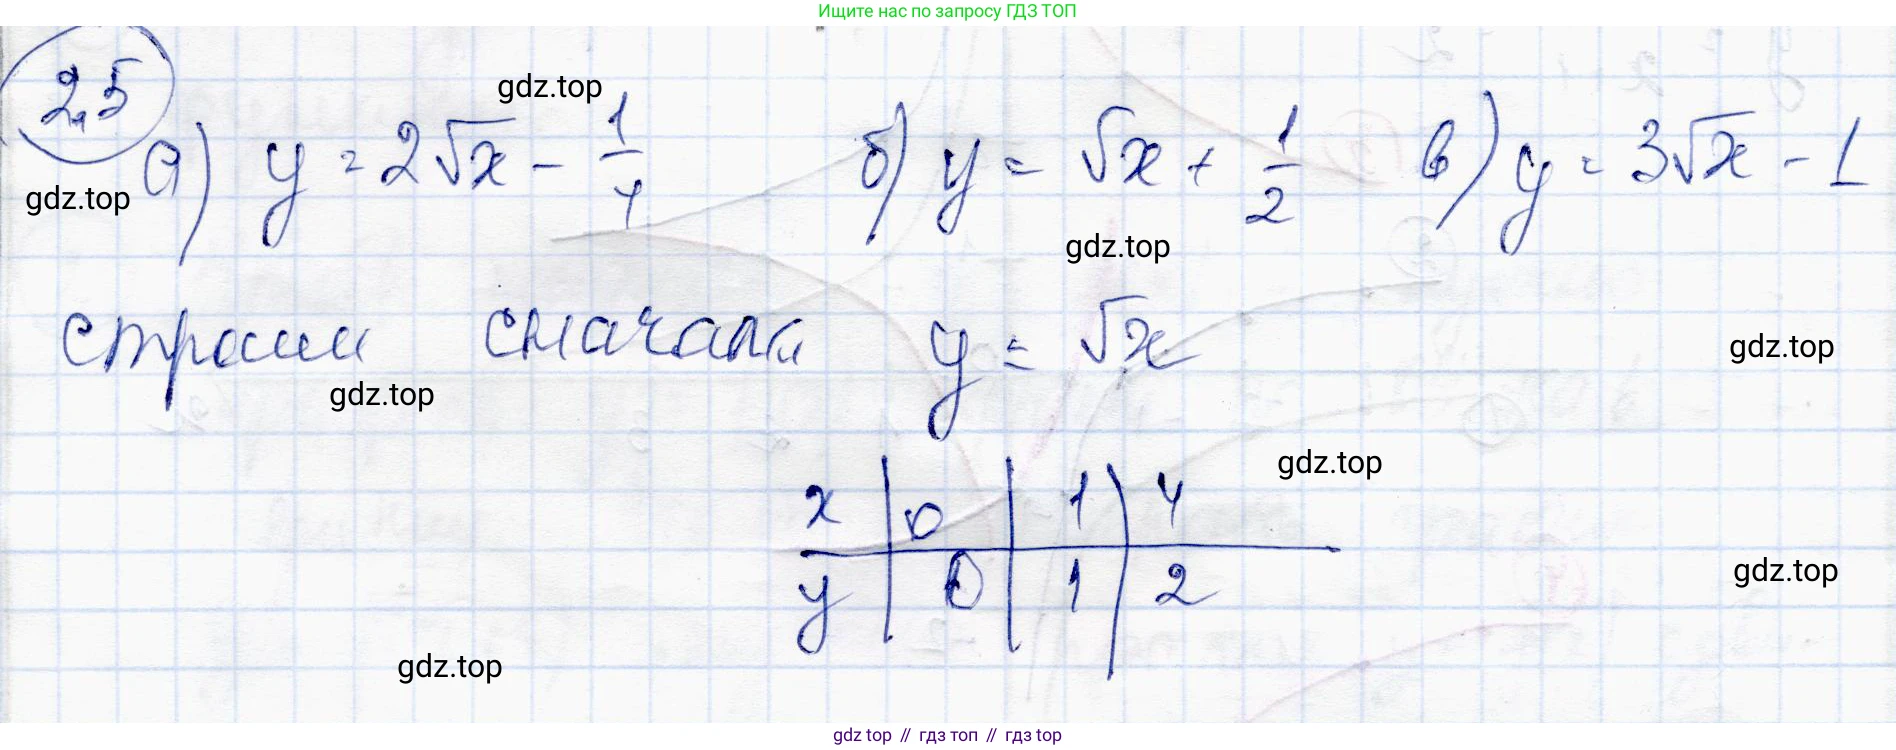 Ищите нас по запросу ГДЗ ТОП
2.5
gdz.top
а) y = 2√x - 1/4 б) y = √x + 1/2 в) y = 3√x - 1
gdz.top
gdz.top
строим сначала y = √x
gdz.top
gdz.top
gdz.top
x | 0 | 1 | 4
y | 0 | 1 | 2
gdz.top
gdz.top
gdz top // гдз топ // гдз top